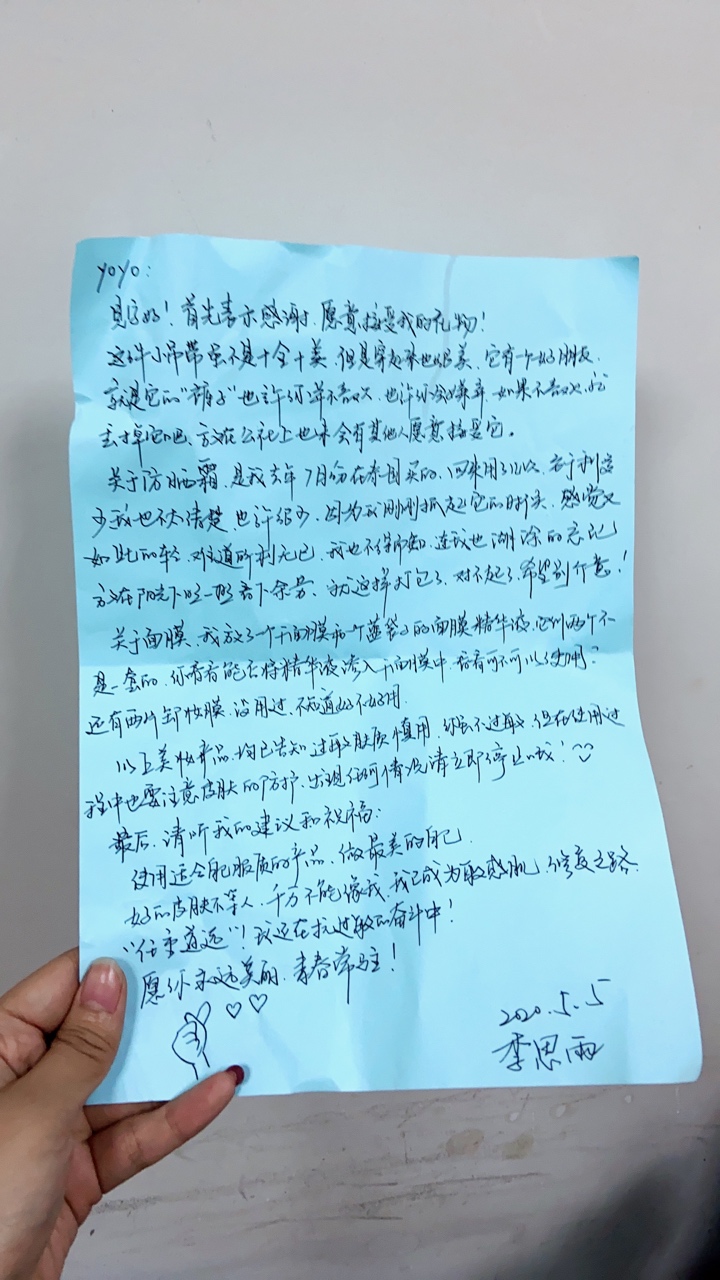 yoyo：
见字好！首先表示感谢，愿意接受我的礼物！
这件小吊带虽不是十全十美，但是穿起来也很美，它有一个好朋友，
就是它的“裤子”也许你并不喜欢，也许你会嫌弃，如果不喜欢，就
丢掉它吧，放在公社上也未会有其他人愿意接受它。
关于防晒霜，是我去年7月份在泰国买的，回来用了几次，若于剩多
少我也不太清楚，也许很少，因为我刚刚抓起它的时候，感觉又
如此的轻，难道所剩无已，我也不得而知，连我也糊涂的忘记
放在阳光下照一照看下余量，就这样打包了，对不起了，希望别介意！
关于面膜，我放了一个干面膜和一个蓝袋子的面膜精华液，它们两个不
是一套的，你看看能否将精华液渗入干面膜中，看看可不可以使用？
还有两片卸妆膜，没用过，不知道好不好用。
以上美妆产品，均已告知过敏肤质慎用，你虽不过敏，但在使用过
程中也要注意皮肤的防护，出现任何情况请立即停止哦！♡
最后，请听我的建议和祝福：
使用适合肥肤质的产品，做最美的自己
好的皮肤不等人，千万不能像我，我已成为敏感肌，修复之路
“任重道远”！我还在抗过敏的奋斗中！
愿你永远美丽，青春常驻！
2020.5.5
李思雨